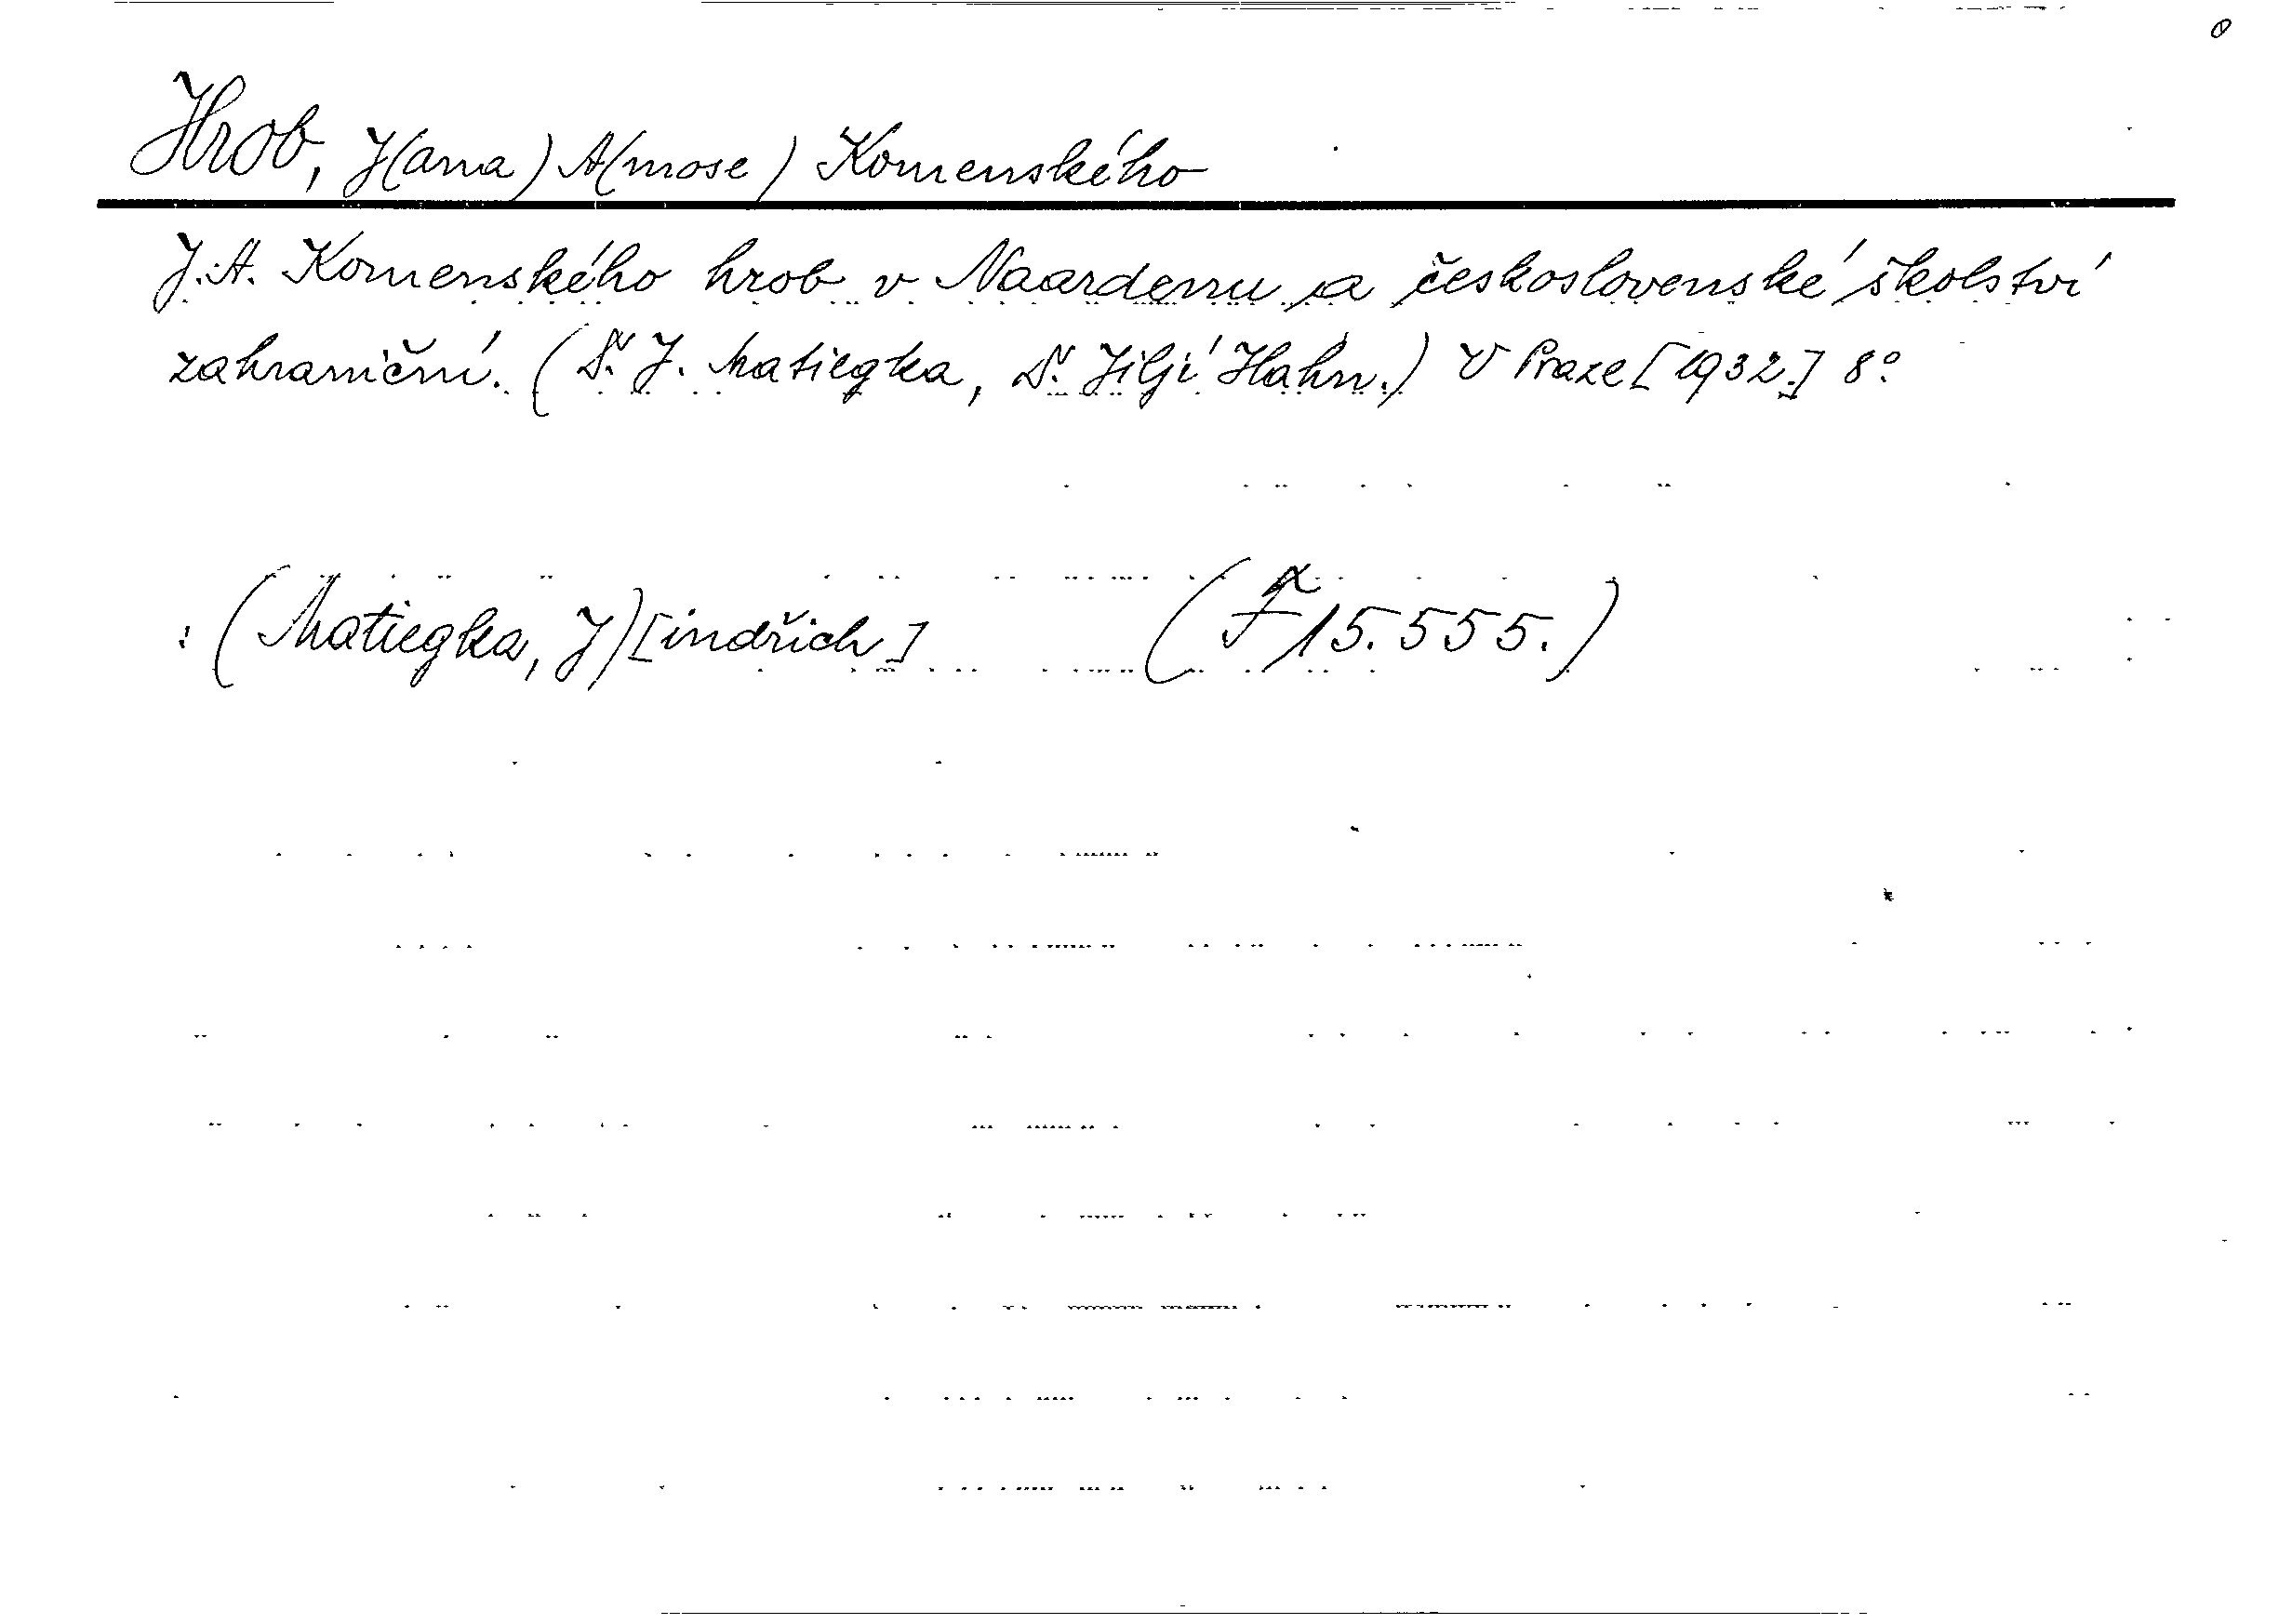 Hrob, J(ana) A(mose) Komenského
J. A. Komenského hrob v Naardenu a československé školství
zahraniční. (Dr. J. Matiegka, Dr. Jiljí Hahn.) V Praze [1932.] 8°
: (Matiegka, J)[indřich] (F 15.555.)